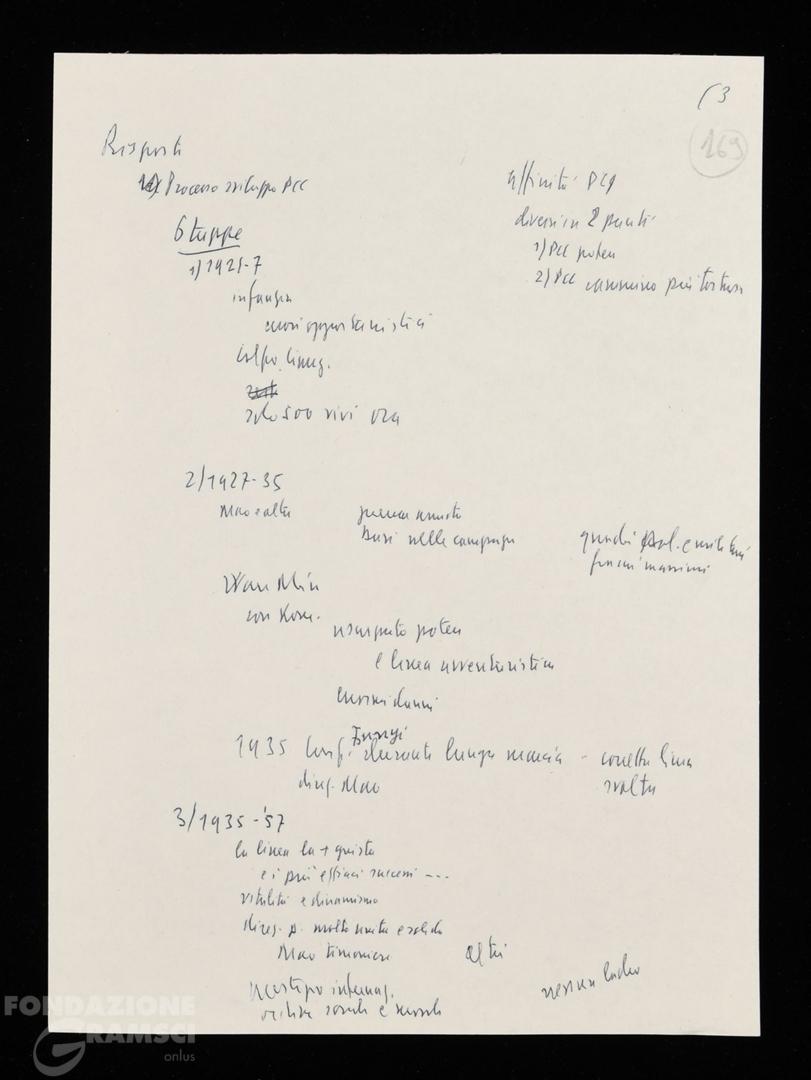 (3
169
Risposte
1) Processo sviluppo PCC
6 tappe
1) 1921-7
infanzia
errori opportunistici
colpo
solo 500 vivi ora
affinità PCI
diversi in 2 punti
1) PCC potere
2) PCC cammino più tortuoso
2/1927-35
Mao e altri
guerra armata
Basi nelle campagne
quadri e militari
furono massimi
Wan Min
con Kom.
usurpato potere
e linea avventuristica
enormi danni
Zunyi
1935 Conf. durante lunga marcia - corretta linea
direz. Mao
svolta
3/1935-'57
la linea la + giusta
e i più efficaci successi ---
vitalità e dinamismo
direz. p. molto unita e solida
Mao timoniere
altri
prestigio internaz.
nessun ladro
FONDAZIONE
GRAMSCI
onlus